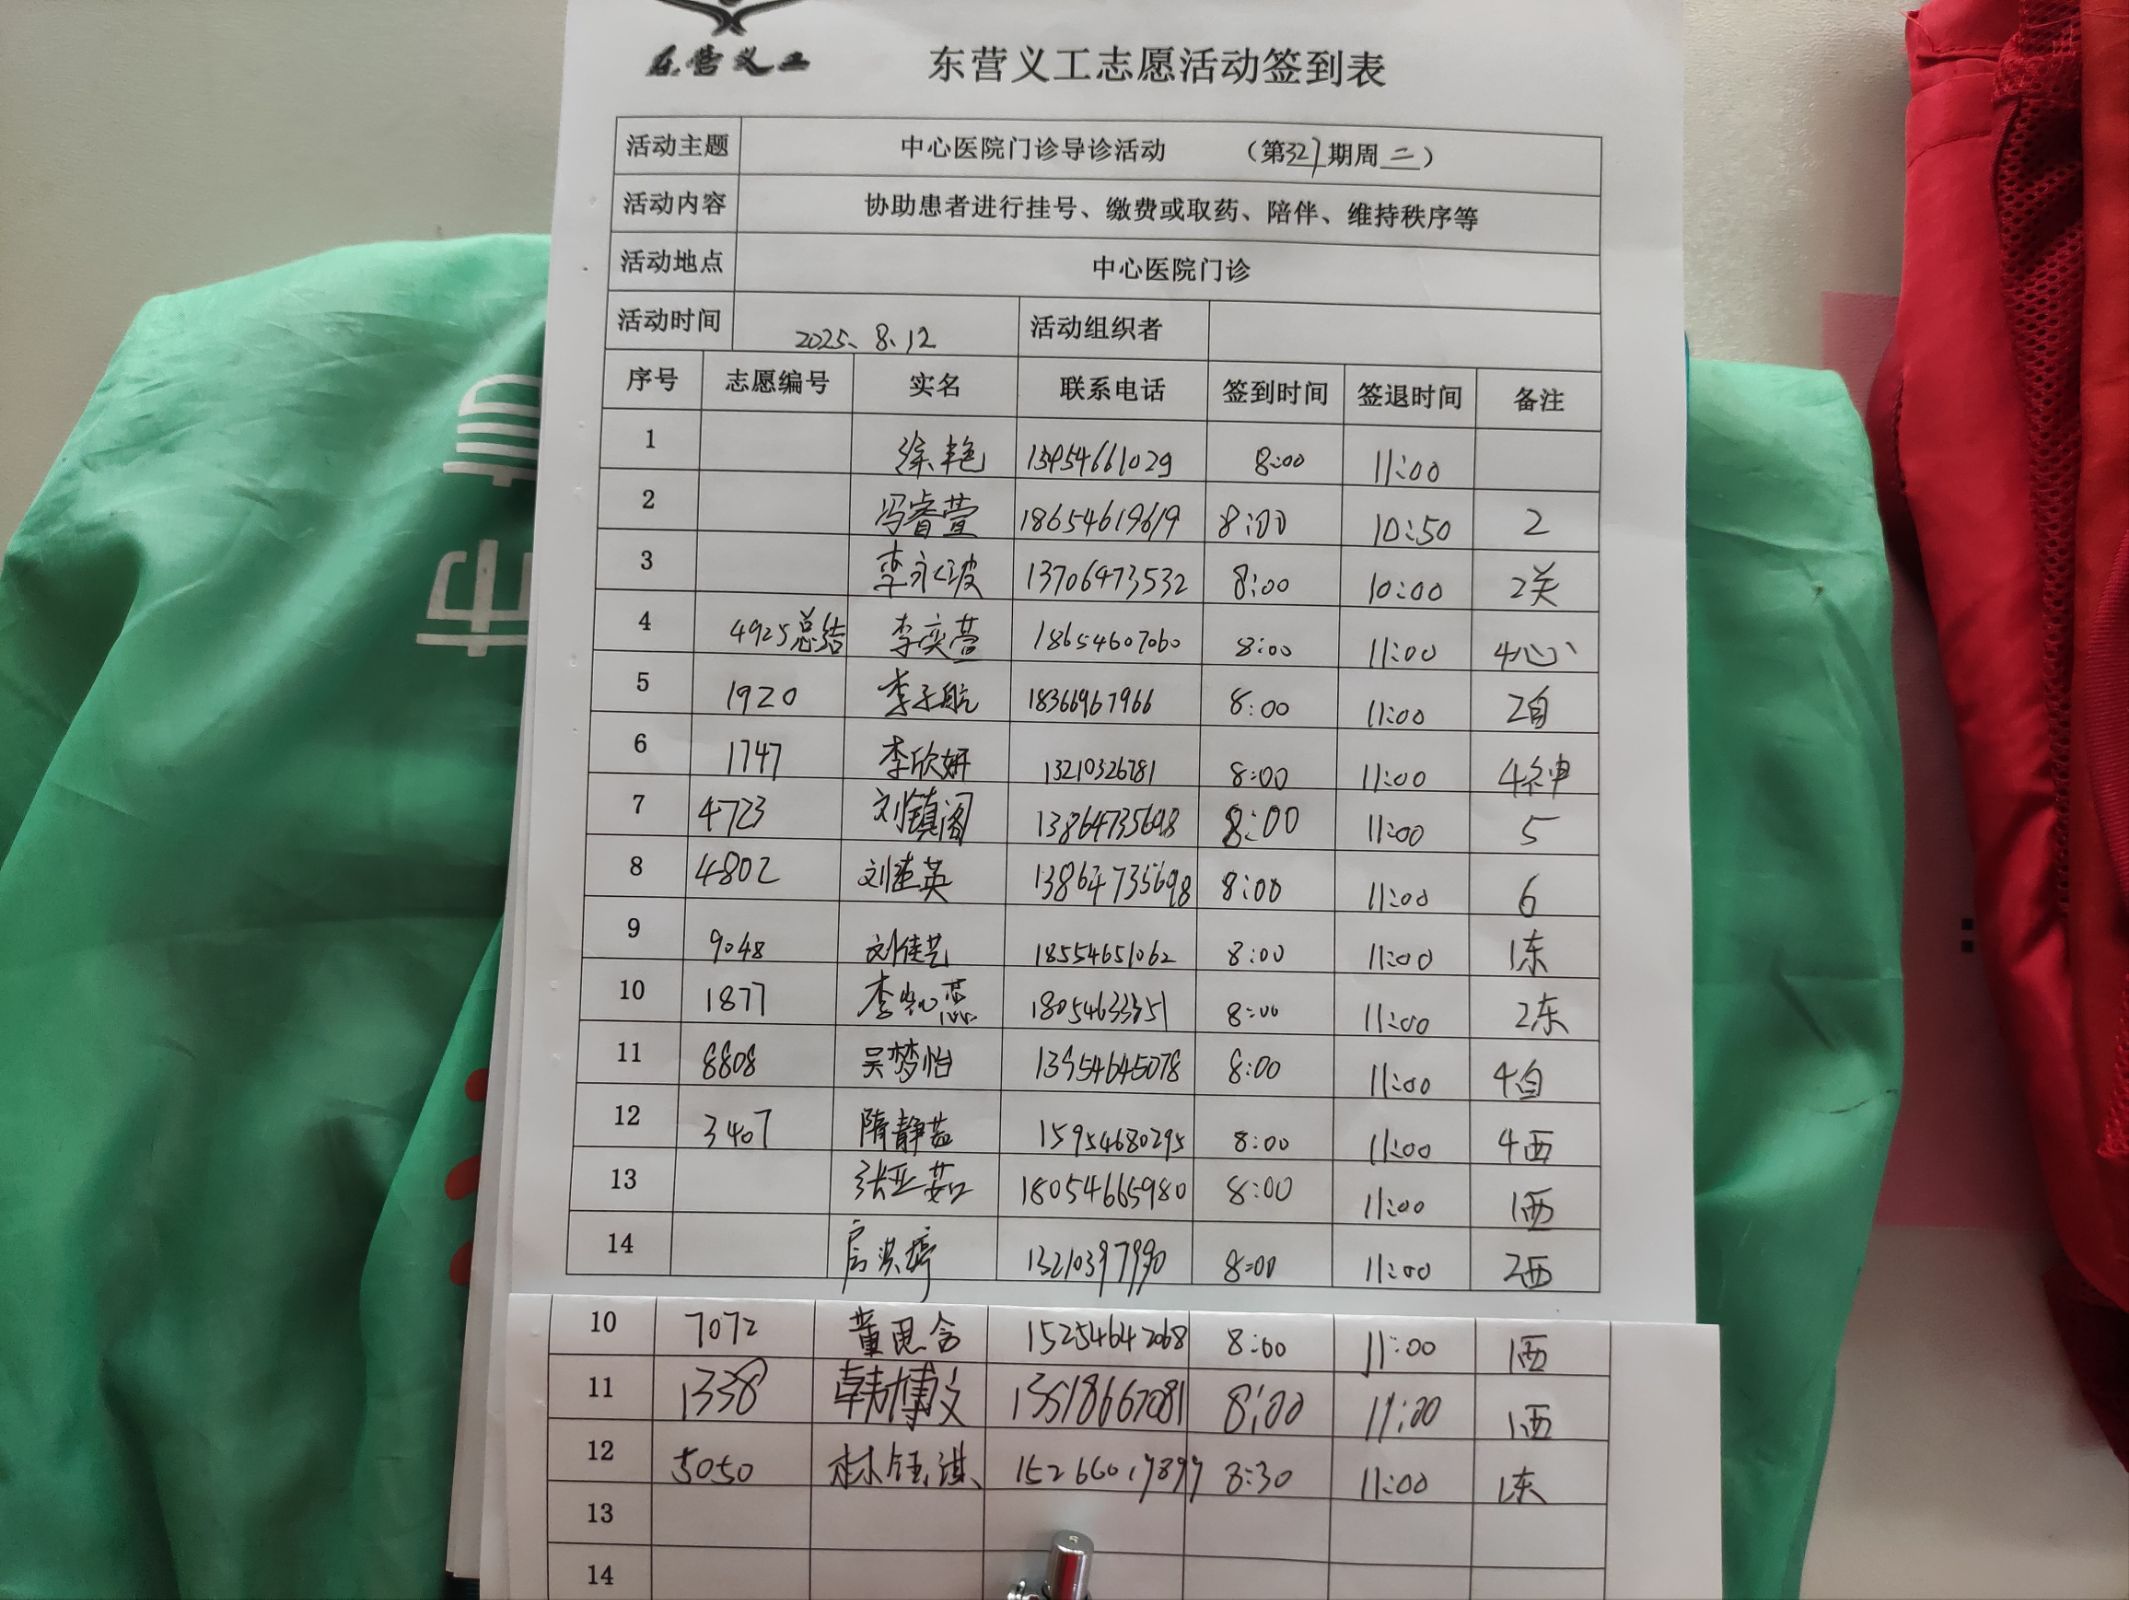 东营义工
东营义工志愿活动签到表
活动主题 中心医院门诊导诊活动 （第327期周二）
活动内容 协助患者进行挂号、缴费或取药、陪伴、维持秩序等
活动地点 中心医院门诊
活动时间 2025.8.12 活动组织者
序号 志愿编号 实名 联系电话 签到时间 签退时间 备注
1 徐艳 13954661029 8:00 11:00
2 冯睿萱 18654619619 8:00 10:50 2
3 李永波 13706473532 8:00 10:00 2关
4 4925总结 李奕萱 18654607060 8:00 11:00 4心
5 1920 李子航 18366967966 8:00 11:00 2自
6 1747 李欣妍 13210326781 8:00 11:00 4神
7 4723 刘镇阁 13864735698 8:00 11:00 5
8 4802 刘建英 13864735698 8:00 11:00 6
9 9048 刘佳艺 18554651062 8:00 11:00 1东
10 1877 李知蕊 18054633351 8:00 11:00 2东
11 8808 吴梦怡 13954645078 8:00 11:00 4自
12 3407 隋静茹 15954680295 8:00 11:00 4西
13 张亚茹 18054665980 8:00 11:00 1西
14 房淇婷 13210397990 8:00 11:00 2西
10 7072 董思含 15254642068 8:00 11:00 1西
11 1338 韩博文 13518667081 8:00 11:00 1西
12 5050 林钰淇 15266019899 8:30 11:00 1东
13
14